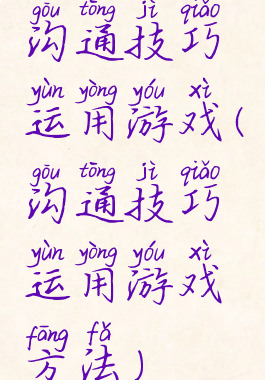 gōu tōng jì qiǎo
沟通技巧
yùn yòng yóu xì
运用游戏(
gōu tōng jì qiǎo
沟通技巧
yùn yòng yóu xì
运用游戏
fāng fǎ
方法)